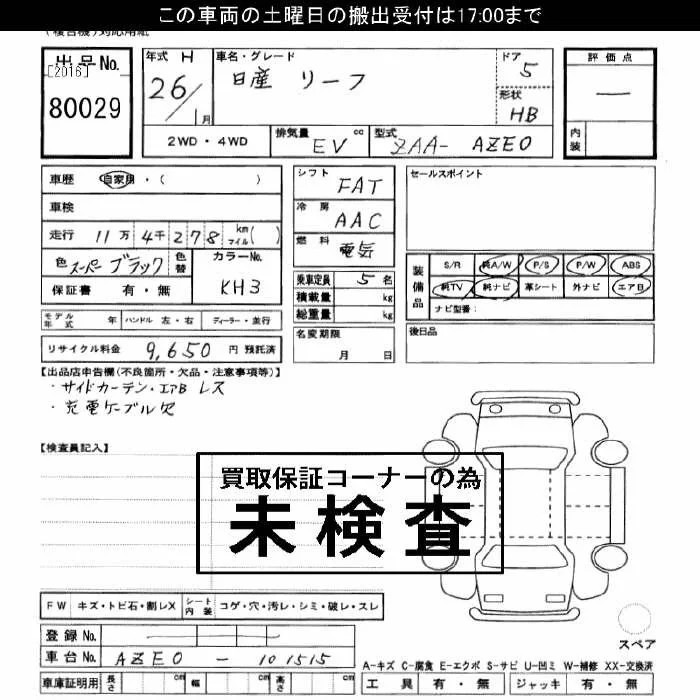 この車両の土曜日の搬出受付は17:00まで
(複合機)対応用紙
出品No.
[2016]
80029
年式 H
26/1月
車名・グレード
日産 リーフ
ドア
5
形状
HB
評価点
—
内装
2WD・4WD
排気量 EV cc
型式 ZAA- AZE0
車歴 自家用・( )
車検
走行 11万4千278 km マイル( )
色 スーパーブラック 色替
カラーNo.
KH3
保証書 有・無
シフト
FAT
冷房
AAC
燃料
電気
セールスポイント
装備品
S/R 純A/W P/S P/W ABS
純TV 純ナビ 革シート 外ナビ エアB
ナビ型番:
乗車定員 5名
積載量 kg
総重量 kg
モデル年式 年 ハンドル 左・右 ディーラー・並行
名変期限
月 日
後日品
リサイクル料金 9,650 円 預託済
【出品店申告欄(不良箇所・欠品・注意事項等)】
・サイドカーテン・エアB レス
・充電ケーブル欠
【検査員記入】
買取保証コーナーの為
未検査
FW キズ・トビ石・割レX シート内装 コゲ・穴・汚レ・シミ・破レ・スレ
登録No.
車台No. AZE0 - 101515
車庫証明用 長さ cm 幅 cm 高さ cm
スペア
A-キズ C-腐食 E-エクボ S-サビ U-凹ミ W-補修 XX-交換済
工具 有・無 ジャッキ 有・無